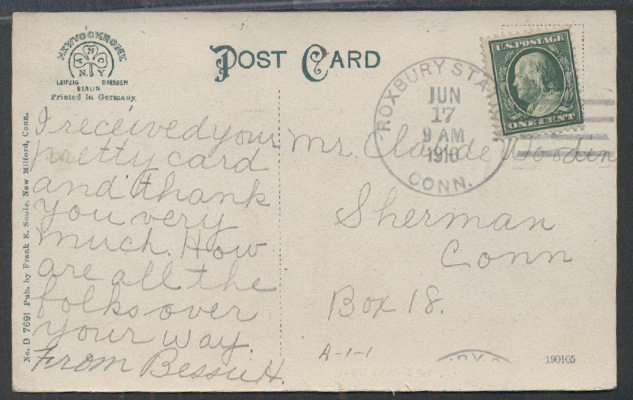 NEWVOCHROME
A N C N Y
LEIPZIG DRESDEN
BERLIN
Printed in Germany.
POST CARD
ROXBURY STA.
JUN
17
9 AM
1910
CONN.
U.S. POSTAGE
ONE CENT
No. D 7691 Pub. by Frank E. Soule, New Milford, Conn.
I received your
pretty card
and thank
you very
much. How
are all the
folks over
your way.
From Bessie H.
Mr. Claude Wooden
Sherman
Conn
Box 18.
A-1-1
190105